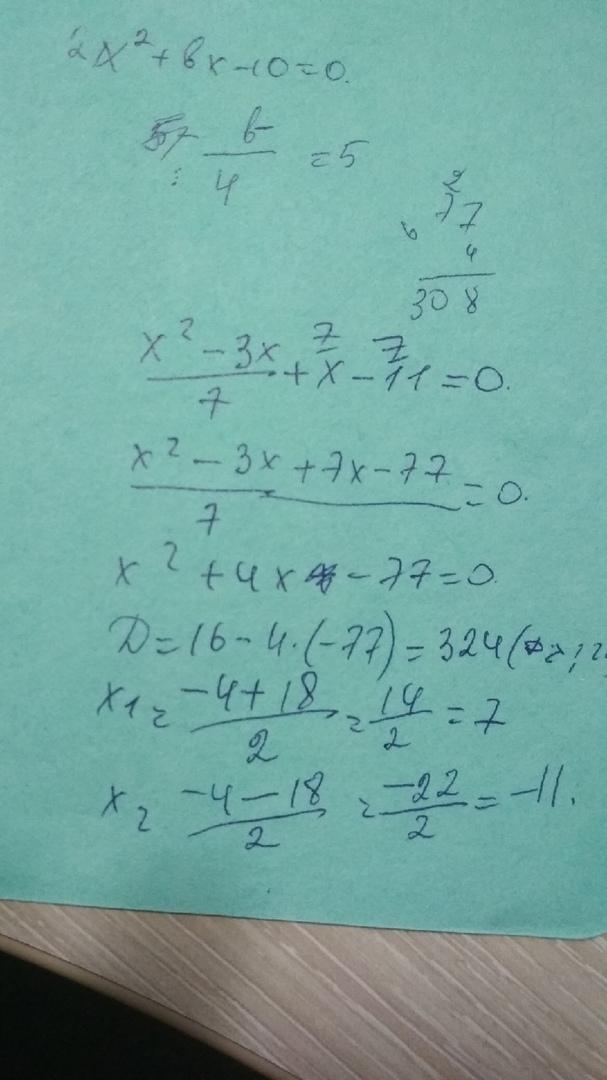 2x² + bx - 10 = 0.
b
— = 5
4
2
77
4
308
x² - 3x 7 7
——— + x - 11 = 0.
7
x² - 3x + 7x - 77
——————— = 0.
7
x² + 4x - 77 = 0
D = 16 - 4·(-77) = 324 (
x₁ = (-4 + 18)/2 = 14/2 = 7
x₂ (-4 - 18)/2 = -22/2 = -11.